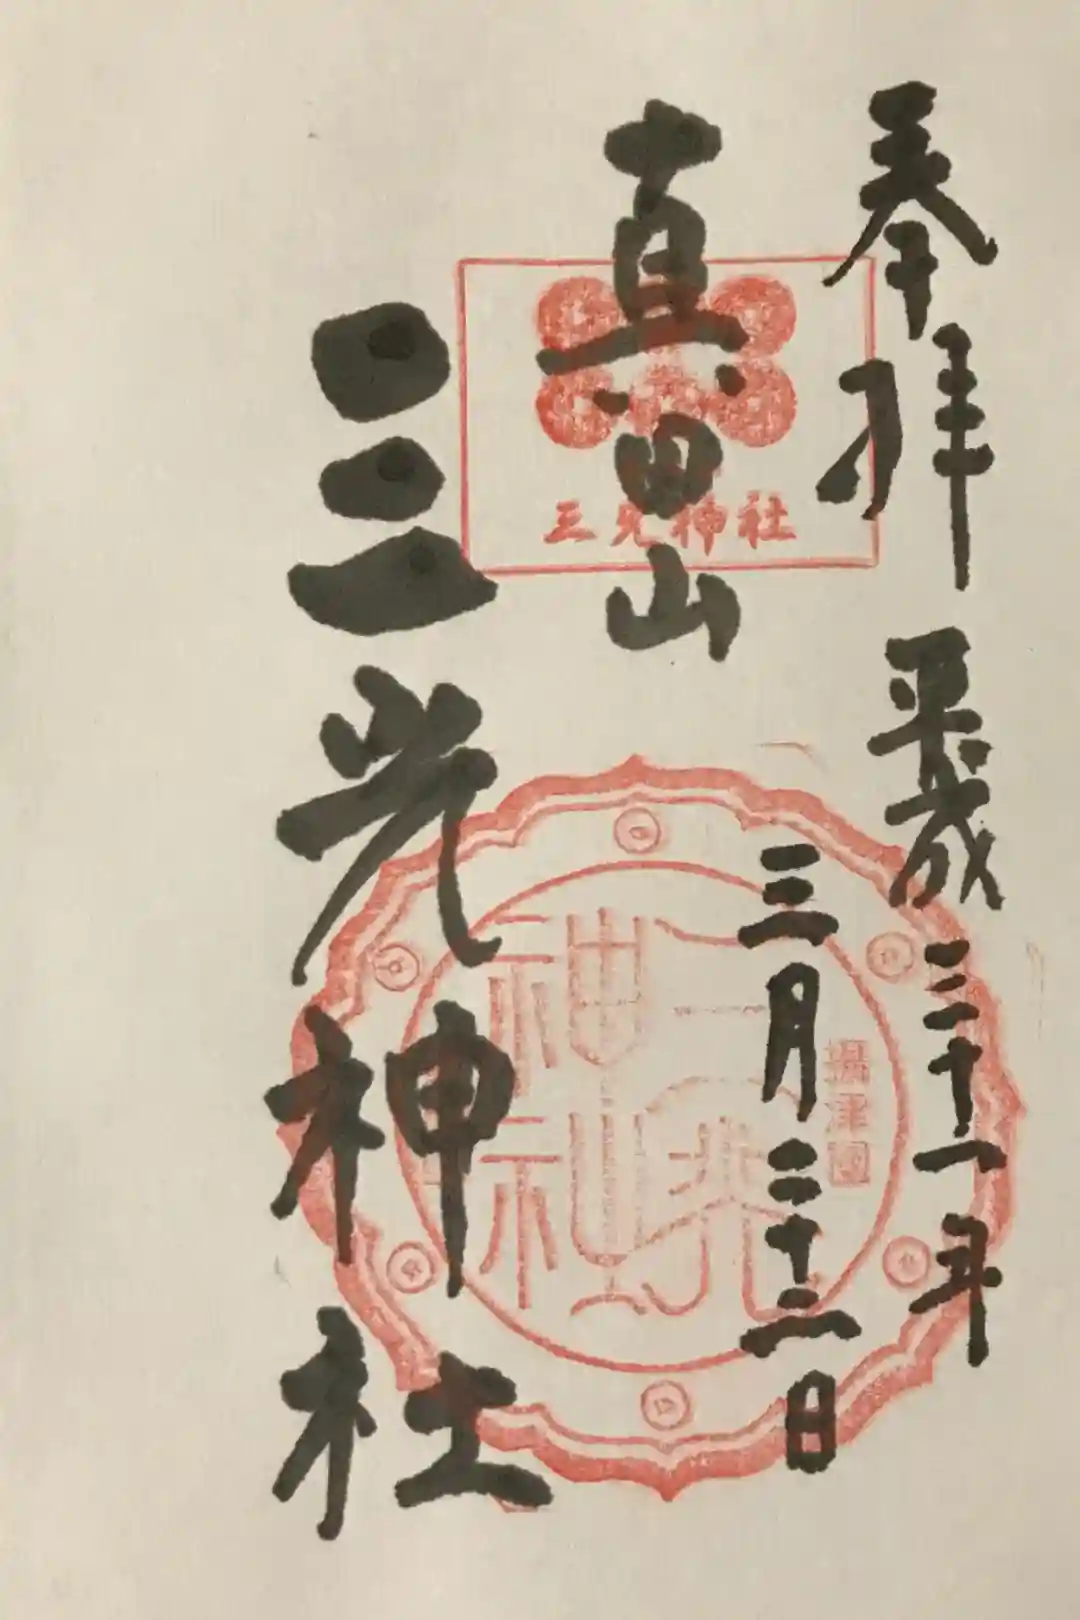 奉拝 平成三十一年
三月二十三日
真田山
三光神社
三光神社
三光
神社
攝津國